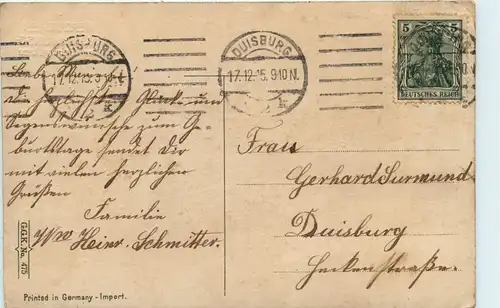 DUISBURG
17.12.15. 9-10 N.
k
DUISBURG
17.12.15. 9-10 N.
k
5 5
DEUTSCHES REICH
die herzlichsten Glück- und
Segenswünsche zum Ge-
burtstage sendet Dir
mit vielen herzlichen
Grüßen
Familie
Heinr. Schmitter.
Frau
Gerhard Surmund
Duisburg
Heckenstraße.
G.G.K. No. 475
Printed in Germany - Import.